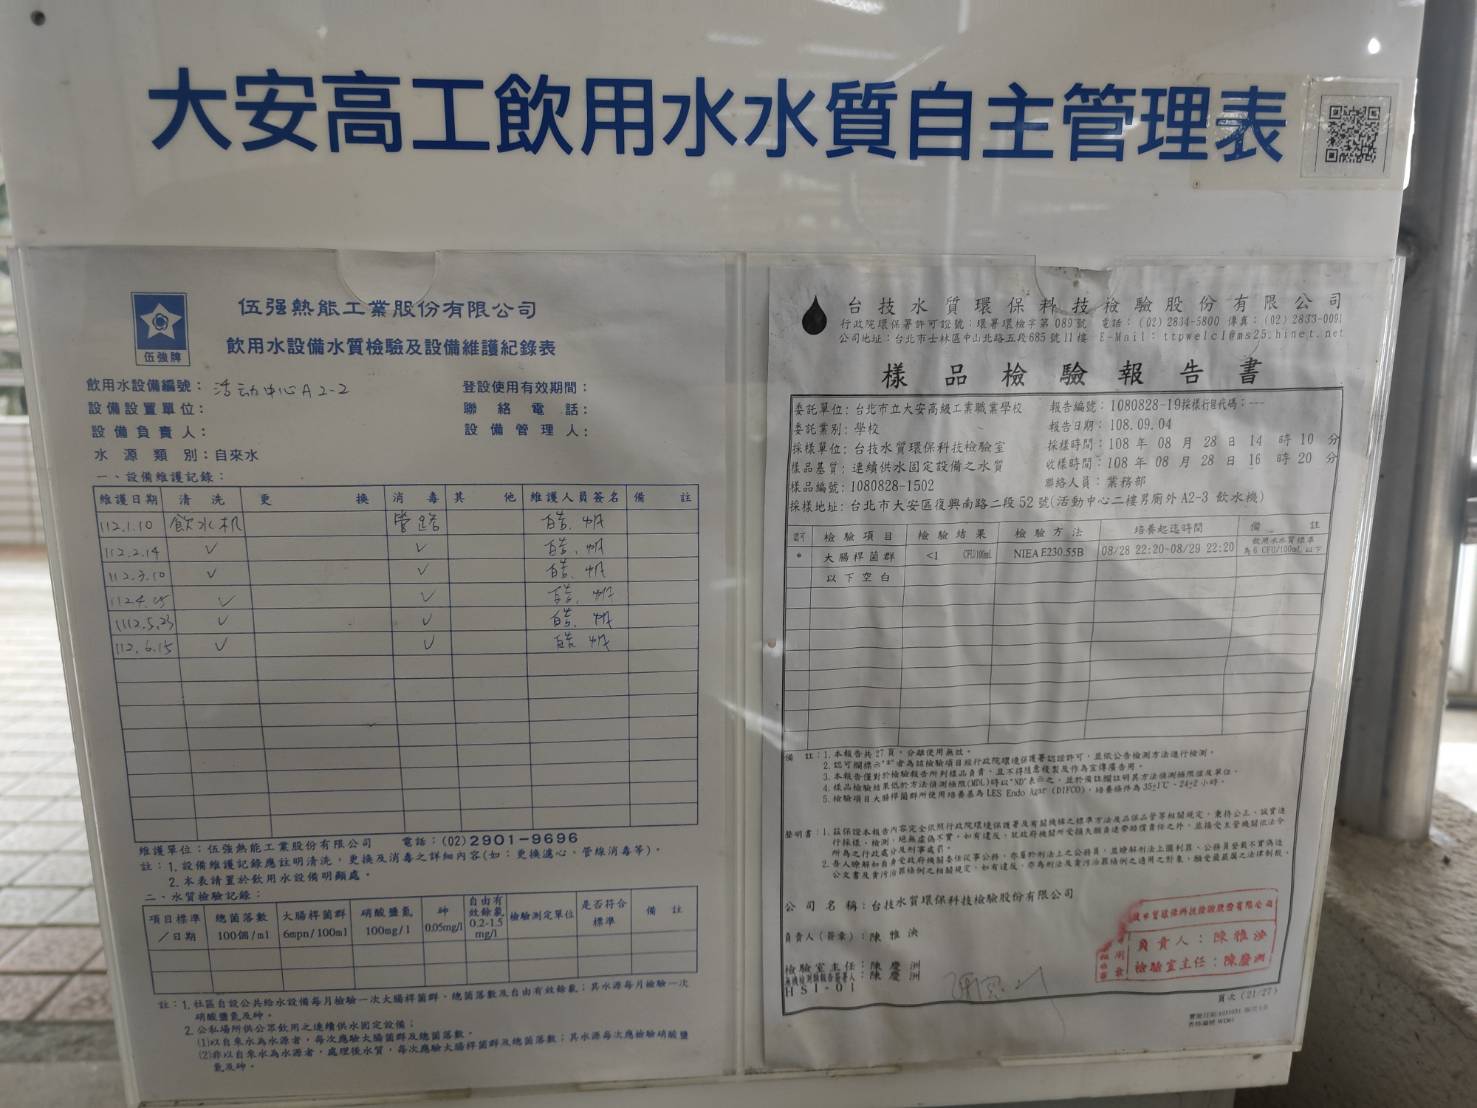 大安高工飲用水水質自主管理表
伍強牌
伍强熱能工業股份有限公司
飲用水設備水質檢驗及設備維護紀錄表
飲用水設備編號：活动中心A2-2
登設使用有效期間：
設備設置單位：
聯絡電話：
設備負責人：
設備管理人：
水源類別：自來水
一、設備維護記錄：
維護日期 清洗 更換 消毒 其他 維護人員簽名 備註
112.1.10 飲水机 管路
112.2.14 ✓ ✓
112.3.10 ✓ ✓
112.4. ✓ ✓
112.5.23 ✓ ✓
112.6.15 ✓ ✓
維護單位：伍強熱能工業股份有限公司 電話：(02)2901-9696
註：1.設備維護記錄應註明清洗，更換及消毒之詳細內容(如：更換濾心、管線消毒等)。
2.本表請置於飲用水設備明顯處。
二、水質檢驗記錄：
項目標準／日期 總菌落數 100個/ml 大腸桿菌群 6mpn/100ml 硝酸鹽氮 100mg/l 砷 0.05mg/l 自由有效餘氯 0.2-1.5 mg/l 檢驗測定單位 是否符合標準 備註
註：1.社區自設公共給水設備每月檢驗一次大腸桿菌群、總菌落數及自由有效餘氯；其水源每月檢驗一次
硝酸鹽氮及砷。
2.公私場所供公眾飲用之連續供水固定設備：
(1)以自來水為水源者，每次應驗大腸菌群及總菌落數。
(2)非以自來水為水源者，處理後水質，每次應驗大腸桿菌群及總菌落數；其水源每次應檢驗硝酸鹽
氮及砷。
台技水質環保科技檢驗股份有限公司
行政院環保署許可證號：環署環檢字第089號 電話：(02)2834-5800 傳真：(02)2833-0091
公司地址：台北市士林區中山北路五段685號11樓 E-Mail：ttpwelcl@ms25.hinet.net
樣品檢驗報告書
委託單位：台北市立大安高級工業職業學校
報告編號：1080828-19採樣行程代碼：---
委託業別：學校
報告日期：108.09.04
採樣單位：台技水質環保科技檢驗室
採樣時間：108年08月28日14時10分
樣品基質：連續供水固定設備之水質
收樣時間：108年08月28日16時20分
樣品編號：1080828-1502
聯絡人員：業務部
採樣地址：台北市大安區復興南路二段52號(活動中心二樓男廁外A2-3飲水機)
認可 檢驗項目 檢驗結果 檢驗方法 培養起迄時間 備註
* 大腸桿菌群 <1 CFU/100mL NIEA E230.55B 08/28 22:20~08/29 22:20 飲用水水質標準為6 CFU/100mL以下
以下空白
備註：1.本報告共27頁，分離使用無效。
2.認可欄標示"*"者為該檢驗項目經行政院環境保護署認證許可，並依公告檢測方法進行檢測。
3.本報告僅對於檢驗報告所列樣品負責，且不得隨意複製及作為宣傳廣告用。
4.樣品檢驗結果低於方法偵測極限(MDL)時以"ND"表示之，並於備註欄註明其方法偵測極限值及單位。
5.檢驗項目大腸桿菌群所使用培養基為LES Endo Agar (DIFCO)，培養條件為35±1℃、24±2小時。
聲明書：1.茲保證本報告內容完全依照行政院環境保護署及有關機構之標準方法及品保品管等相關規定，秉持公正、誠實進
行採樣、檢測。絕無虛偽不實，如有違反，就政府機關所受損失願負連帶賠償責任之外，並接受主管機關依法令
所為之行政處分及刑事處置。
2.吾人瞭解如自身受政府機關委任從事公務，亦屬於刑法上之公務員，並瞭解刑法上圖利罪、公務員登載不實偽造
公文書及貪污治罪條例之相關規定，如有違反，亦為刑法及貪污治罪條例之適用之對象，願受最嚴厲之法律制裁。
公司名稱：台技水質環保科技檢驗股份有限公司
負責人(簽章)：陳雅泱
檢驗室主任：陳慶洲
無機檢測類報告簽署人：陳慶洲
HSI-01
負責人：陳雅泱
檢驗室主任：陳慶洲
頁次(21/27)